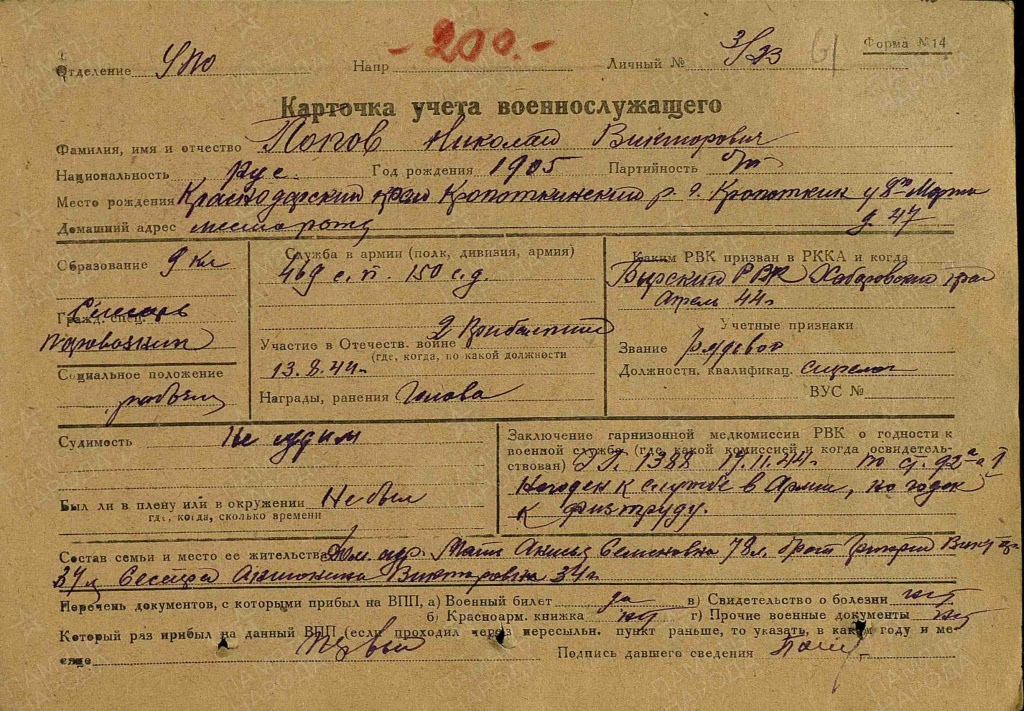 Форма №14
Отделение УПО Напр - 200.- Личный № 3/223 61
Карточка учета военнослужащего
Фамилия, имя и отчество Попов Николай Викторович
Национальность Рус. Год рождения 1905 Партийность б/п
Место рождения Краснодарский край Кропоткинский р. г. Кропоткин ул 8го Марта
Домашний адрес место рожд д. 47
Образование 9 кл
Гражд. спец. Слесарь
паровозник
Социальное положение
рабочий
Служба в армии (полк, дивизия, армия)
469 с.п. 150 с.д.
Участие в Отечеств. войне 2 Прибалтий
(где, когда, по какой должности
13.8.44г.
Награды, ранения Голова
Каким РВК призван в РККА и когда
Бирский РВК Хабаровский край
Апрель 44г
Учетные признаки
Звание рядовой
Должностн. квалификац. стрелок
ВУС №
Судимость Не судим
Был ли в плену или в окружении Не был
где, когда, сколько времени
Заключение гарнизонной медкомиссии РВК о годности к
военной службе (где, какой комиссией и когда освидетель-
ствован) 1388 17.11.44г по ст. 92
Негоден к службе в Армии, но годен
к физтруду.
Состав семьи и место ее жительства Дом. адр. Мать Семеновна 78л. брат Григорий Викт
34л Сестра Антонина Викторовна 34г.
Перечень документов, с которыми прибыл на ВПП, а) Военный билет да в) Свидетельство о болезни нет
б) Красноарм. книжка нет г) Прочие военные документы нет
Который раз прибыл на данный ВПП (если проходил через пересыльн. пункт раньше, то указать, в каком году и ме-
сяце Первый Подпись давшего сведения